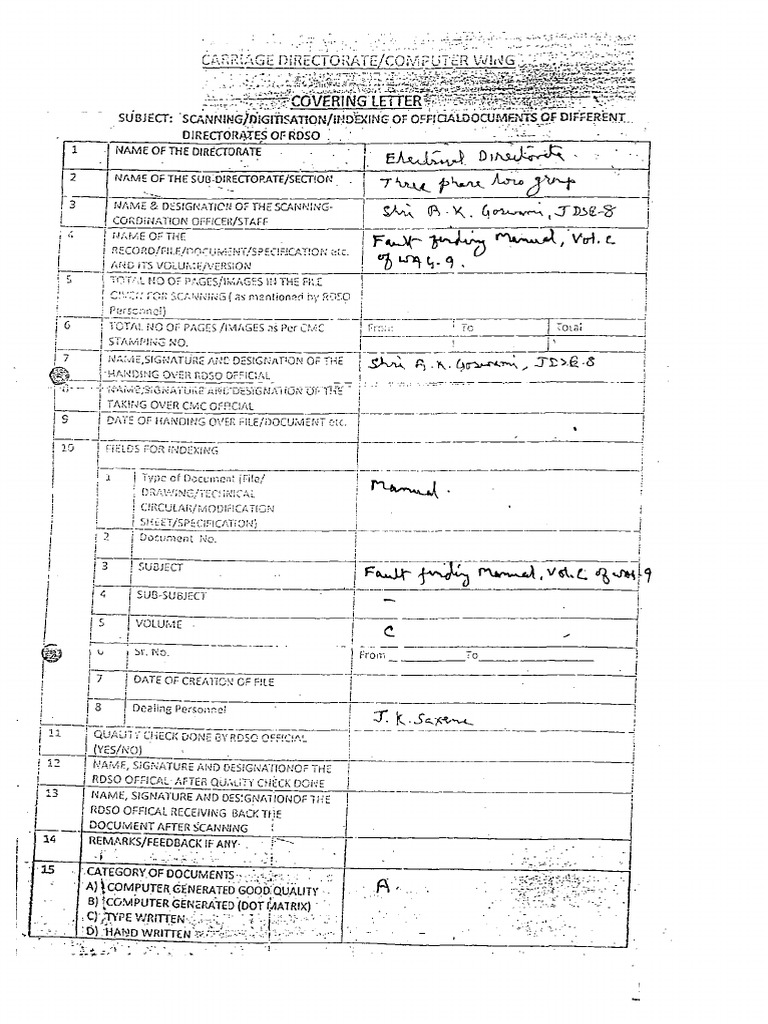 CARRIAGE DIRECTORATE/COMPUTER WING
COVERING LETTER
SUBJECT: SCANNING/DIGITISATION/INDEXING OF OFFICIALDOCUMENTS OF DIFFERENT
DIRECTORATES OF RDSO
1 NAME OF THE DIRECTORATE Electrical Directorate
2 NAME OF THE SUB-DIRECTORATE/SECTION Three phase loco group
3 NAME & DESIGNATION OF THE SCANNING- Shri R.K. Goswami, JDSE-8
CORDINATION OFFICER/STAFF
4 NAME OF THE Fault finding Manual, Vol. C
RECORD/FILE/DOCUMENT/SPECIFICATION etc. of WAG-9.
AND ITS VOLUME/VERSION
5 TOTAL NO OF PAGES/IMAGES IN THE FILE
GIVEN FOR SCANNING ( as mentioned by RDSO
Personnel)
6 TOTAL NO OF PAGES /IMAGES as Per CMC From To Total
STAMPING NO.
7 NAME,SIGNATURE AND DESIGNATION OF THE Shri R.K. Goswami, JDSE-8
HANDING OVER RDSO OFFICIAL
8 NAME,SIGNATURE AND DESIGNATION OF THE
TAKING OVER CMC OFFICIAL
9 DATE OF HANDING OVER FILE/DOCUMENT etc.
10 FIELDS FOR INDEXING
1 Type of Document (File/ Manual.
DRAWING/TECHNICAL
CIRCULAR/MODIFICATION
SHEET/SPECIFICATION)
2 Document No.
3 SUBJECT Fault finding Manual, Vol. C of WAG-9
4 SUB-SUBJECT –
5 VOLUME C
6 Sr. No. From To
7 DATE OF CREATION OF FILE
8 Dealing Personnel J.K. Saxena
11 QUALITY CHECK DONE BY RDSO OFFICIAL
(YES/NO)
12 NAME, SIGNATURE AND DESIGNATIONOF THE
RDSO OFFICAL AFTER QUALITY CHECK DONE
13 NAME, SIGNATURE AND DESIGNATIONOF THE
RDSO OFFICAL RECEIVING BACK THE
DOCUMENT AFTER SCANNING
14 REMARKS/FEEDBACK IF ANY
15 CATEGORY OF DOCUMENTS
A) COMPUTER GENERATED GOOD QUALITY A.
B) COMPUTER GENERATED (DOT MATRIX)
C) TYPE WRITTEN
D) HAND WRITTEN